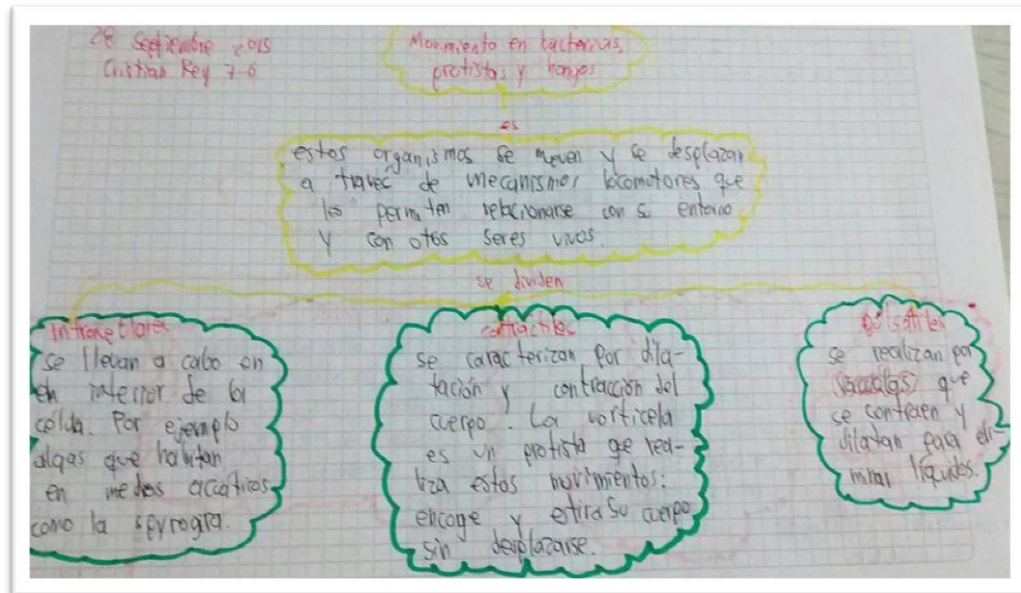 28 Septiembre 2015
Cristian Rey 7-6
Movimiento en bacterias,
protistas y hongos
es
estos organismos se mueven y se desplazan
a travec de mecanismos locomotores que
les permiten relacionarse con su entorno
y con otros seres vivos.
se dividen
intracelulares
se llevan a cabo en
en interior de la
célula. Por ejemplo
algas que habitan
en medios acuaticos
como la spyrogira.
contractiles
se caracterizan por dila-
tación y contracción del
cuerpo. La vorticela
es un protista que rea-
liza estos movimientos:
encoge y estira su cuerpo
sin desplazarse.
Pulsatiles
se realizan por
vacuolas que
se contraen y
dilatan para eli-
minar líquidos.